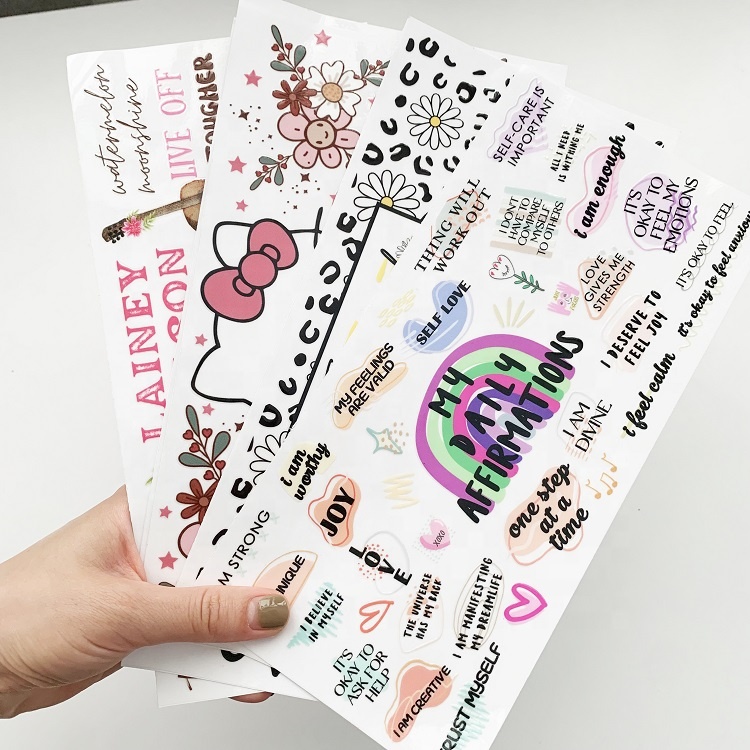 watermelon
moonshine
LIVE OFF
TOUGHER
LAINEY
SELF CARE IS
IMPORTANT
ALL I NEED
IS WITHING ME
i am enough
IT'S
OKAY TO
FEEL MY
EMOTIONS
THING WILL
WORK OUT
I DON'T
HAVE TO
COMPARE
MYSELF
TO OTHERS
LOVE
GIVES ME
STRENGTH
IT'S OKAY TO FEEL
it's okay to feel
SELF LOVE
I DESERVE TO
FEEL JOY
MY FEELINGS
ARE VALID
MY
DAILY
AFFIRMATIONS
i feel calm
I AM
DIVINE
i am
worthy
JOY
one step
at a
time
STRONG
LOVE
XOXO
I BELIEVE
IN MYSELF
THE UNIVERSE
HAS MY BACK
I AM MANIFESTING
MY DREAMLIFE
IT'S
OKAY TO
ASK FOR
HELP
I AM CREATIVE
MYSELF